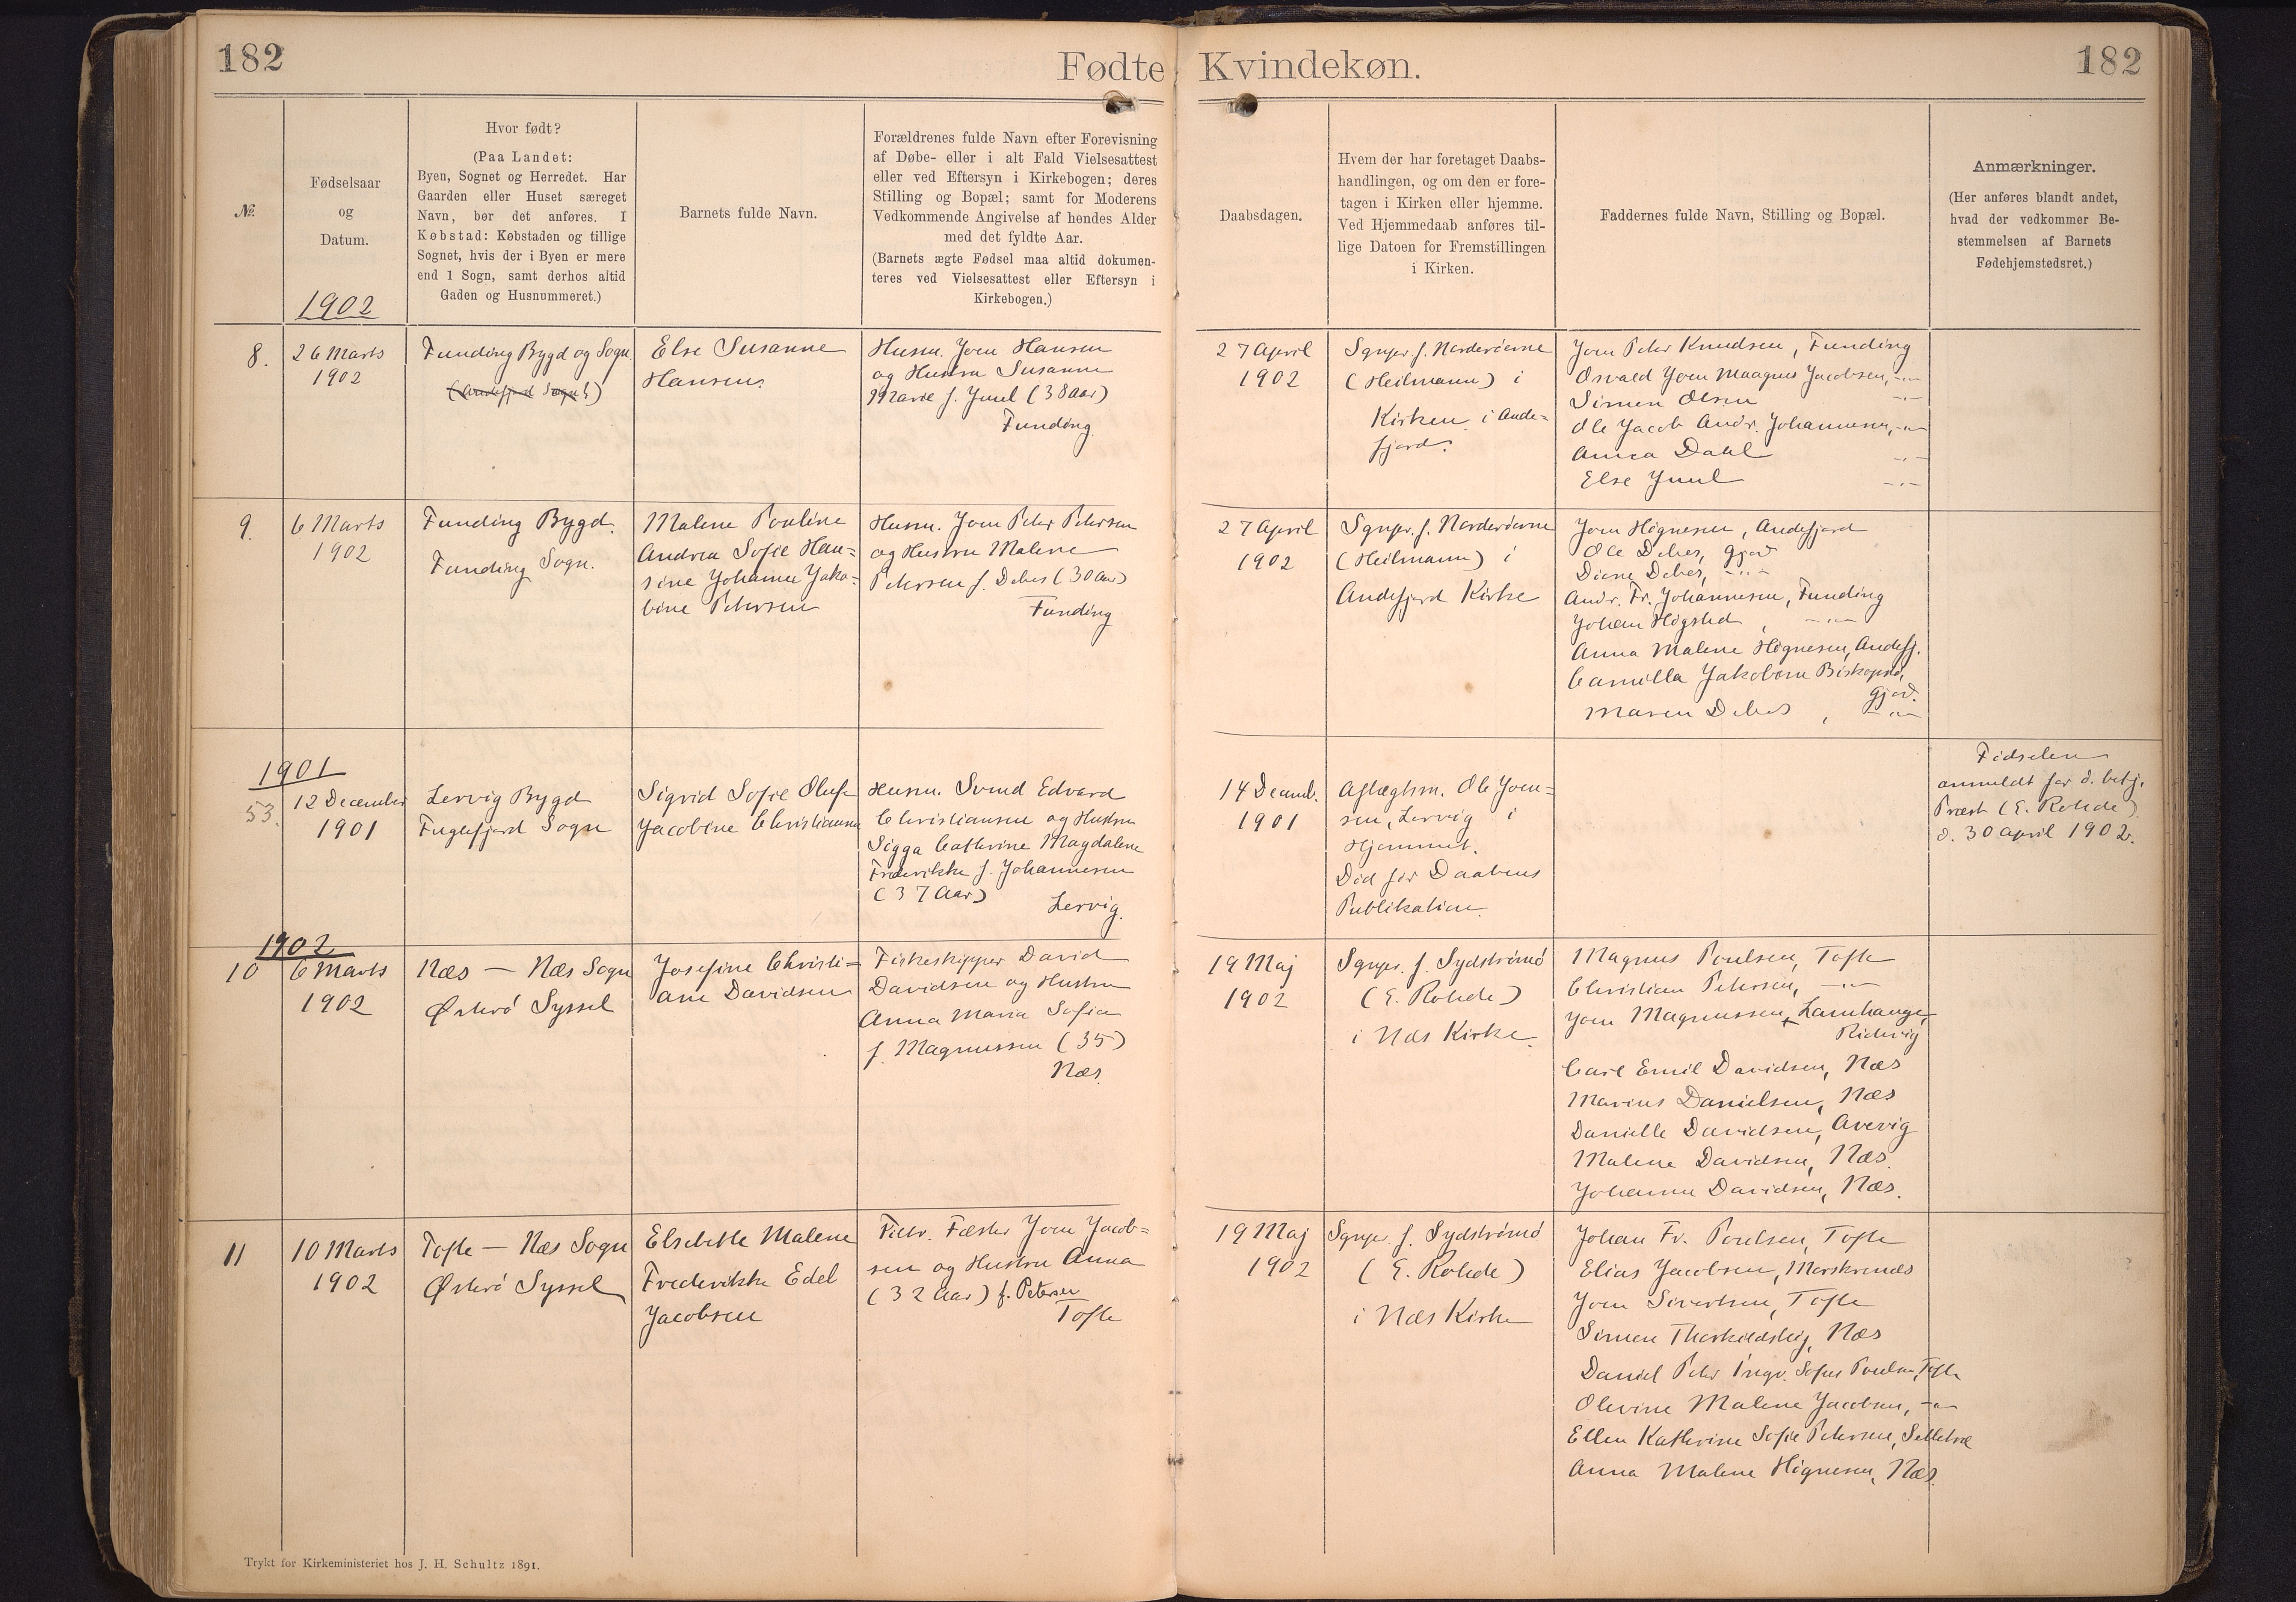 182
Fødte
Kvindekøn.
182
№.
Fødselsaar
og
Datum.
1902
Hvor født?
(Paa Landet:
Byen, Sognet og Herredet. Har
Gaarden eller Huset særeget
Navn, bør det anføres. I
Købstad: Købstaden og tillige
Sognet, hvis der i Byen er mere
end 1 Sogn, samt derhos altid
Gaden og Husnummeret.)
Barnets fulde Navn.
Forældrenes fulde Navn efter Forevisning
af Døbe- eller i alt Fald Vielsesattest
eller ved Eftersyn i Kirkebogen; deres
Stilling og Bopæl; samt for Moderens
Vedkommende Angivelse af hendes Alder
med det fyldte Aar.
(Barnets ægte Fødsel maa altid dokumen-
teres ved Vielsesattest eller Eftersyn i
Kirkebogen.)
Daabsdagen.
Hvem der har foretaget Daabs-
handlingen, og om den er fore-
tagen i Kirken eller hjemme.
Ved Hjemmedaab anføres til-
lige Datoen for Fremstillingen
i Kirken.
Faddernes fulde Navn, Stilling og Bopæl.
Anmærkninger.
(Her anføres blandt andet,
hvad der vedkommer Be-
stemmelsen af Barnets
Fødehjemstedsret.)
8.
26 Marts
1902
Funding Bygd og Sogn.
(Andefjord Sogn!)
Else Susanne
Hansen.
Husm. Joen Hansen
og Hustru Susanne
Marie f. Juul (38 Aar)
Funding.
27 April
1902
Sgnpr. f. Norderøerne
(Heilmann) i
Kirken i Ande=
fjord.
Joen Peter Knudsen, Funding
Osvald Joen Maagnus Jacobsen, -"-
Simen Olsen -"-
Ole Jacob Andr. Johannesen, -"-
Anna Dahl -"-
Else Juul -"-
9.
6 Marts
1902
Funding Bygd.
Funding Sogn.
Malene Pouline
Andrea Sofie Han=
sine Johanne Jako=
bine Petersen
Husm. Joen Peter Petersen
og Hustru Malene
Petersen f. Debes (30 Aar)
Funding
27 April
1902
Sgnpr. f. Norderøerne
(Heilmann) i
Andefjord Kirke
Joen Høgnesen, Andefjord
Ole Debes, Gjov
Diene Debes, -"-
Andr. Fr. Johannesen, Funding
Johan Høgsted, -"-
Anna Malene Høgnesen, Andefj.
Camilla Jakobine Biskopstø,
Gjov.
Maren Debes, -"-
1901
53.
12 December
1901
Lervig Bygd
Fuglefjord Sogn
Sigrid Sofie Olufa
Jacobine Christiansen
Husm. Svend Edvard
Christiansen og Hustru
Sigga Cathrine Magdalene
Frederikke f. Johannesen
(37 Aar)
Lervig.
14 Decemb.
1901
Aftægtsm. Ole Joen=
sen, Lervig i
Hjemmet.
Død før Daabens
Publikation.
Fødselen
anmeldt for d. betj.
Præst (E. Rohde)
d. 30 April 1902.
1902
10
6 Marts
1902
Næs — Næs Sogn
Østerø Syssel
Josefine Christi=
ane Davidsen
Fiskeskipper David
Davidsen og Hustru
Anna Maria Sofia
f. Magnussen (35)
Næs.
19 Maj
1902
Sgnpr. f. Sydstrømø
(E. Rohde)
i Næs Kirke.
Magnus Poulsen, Tofte
Christian Petersen, -"-
Joen Magnussen, Lamhauge,
Ridevig
Carl Emil Davidsen, Næs
Marius Danielsen, Næs
Danielle Davidsen, Avevig
Malene Davidsen, Næs.
Johanne Davidsen, Næs.
11
10 Marts
1902
Tofte — Næs Sogn
Østerø Syssel
Elsebeth Malene
Frederikke Edel
Jacobsen
Fæster Joen Jacob=
sen og Hustru Anna
(32 Aar) f. Petersen
Tofte
19 Maj
1902
Sgnpr. f. Sydstrømø
(E. Rohde)
i Næs Kirke
Johan Fr. Poulsen, Tofte
Elias Jacobsen, Morskrenæs
Joen Sivertsen, Tofte
Simen Thorkildshøj, Næs
Daniel Peter Ingv. Sofus Poulsen, Tofte
Olevine Malene Jacobsen, -"-
Ellen Kathrine Sofie Petersen, Selletræ
Anna Malene Høgnesen, Næs.
Trykt for Kirkeministeriet hos J. H. Schultz 1891.